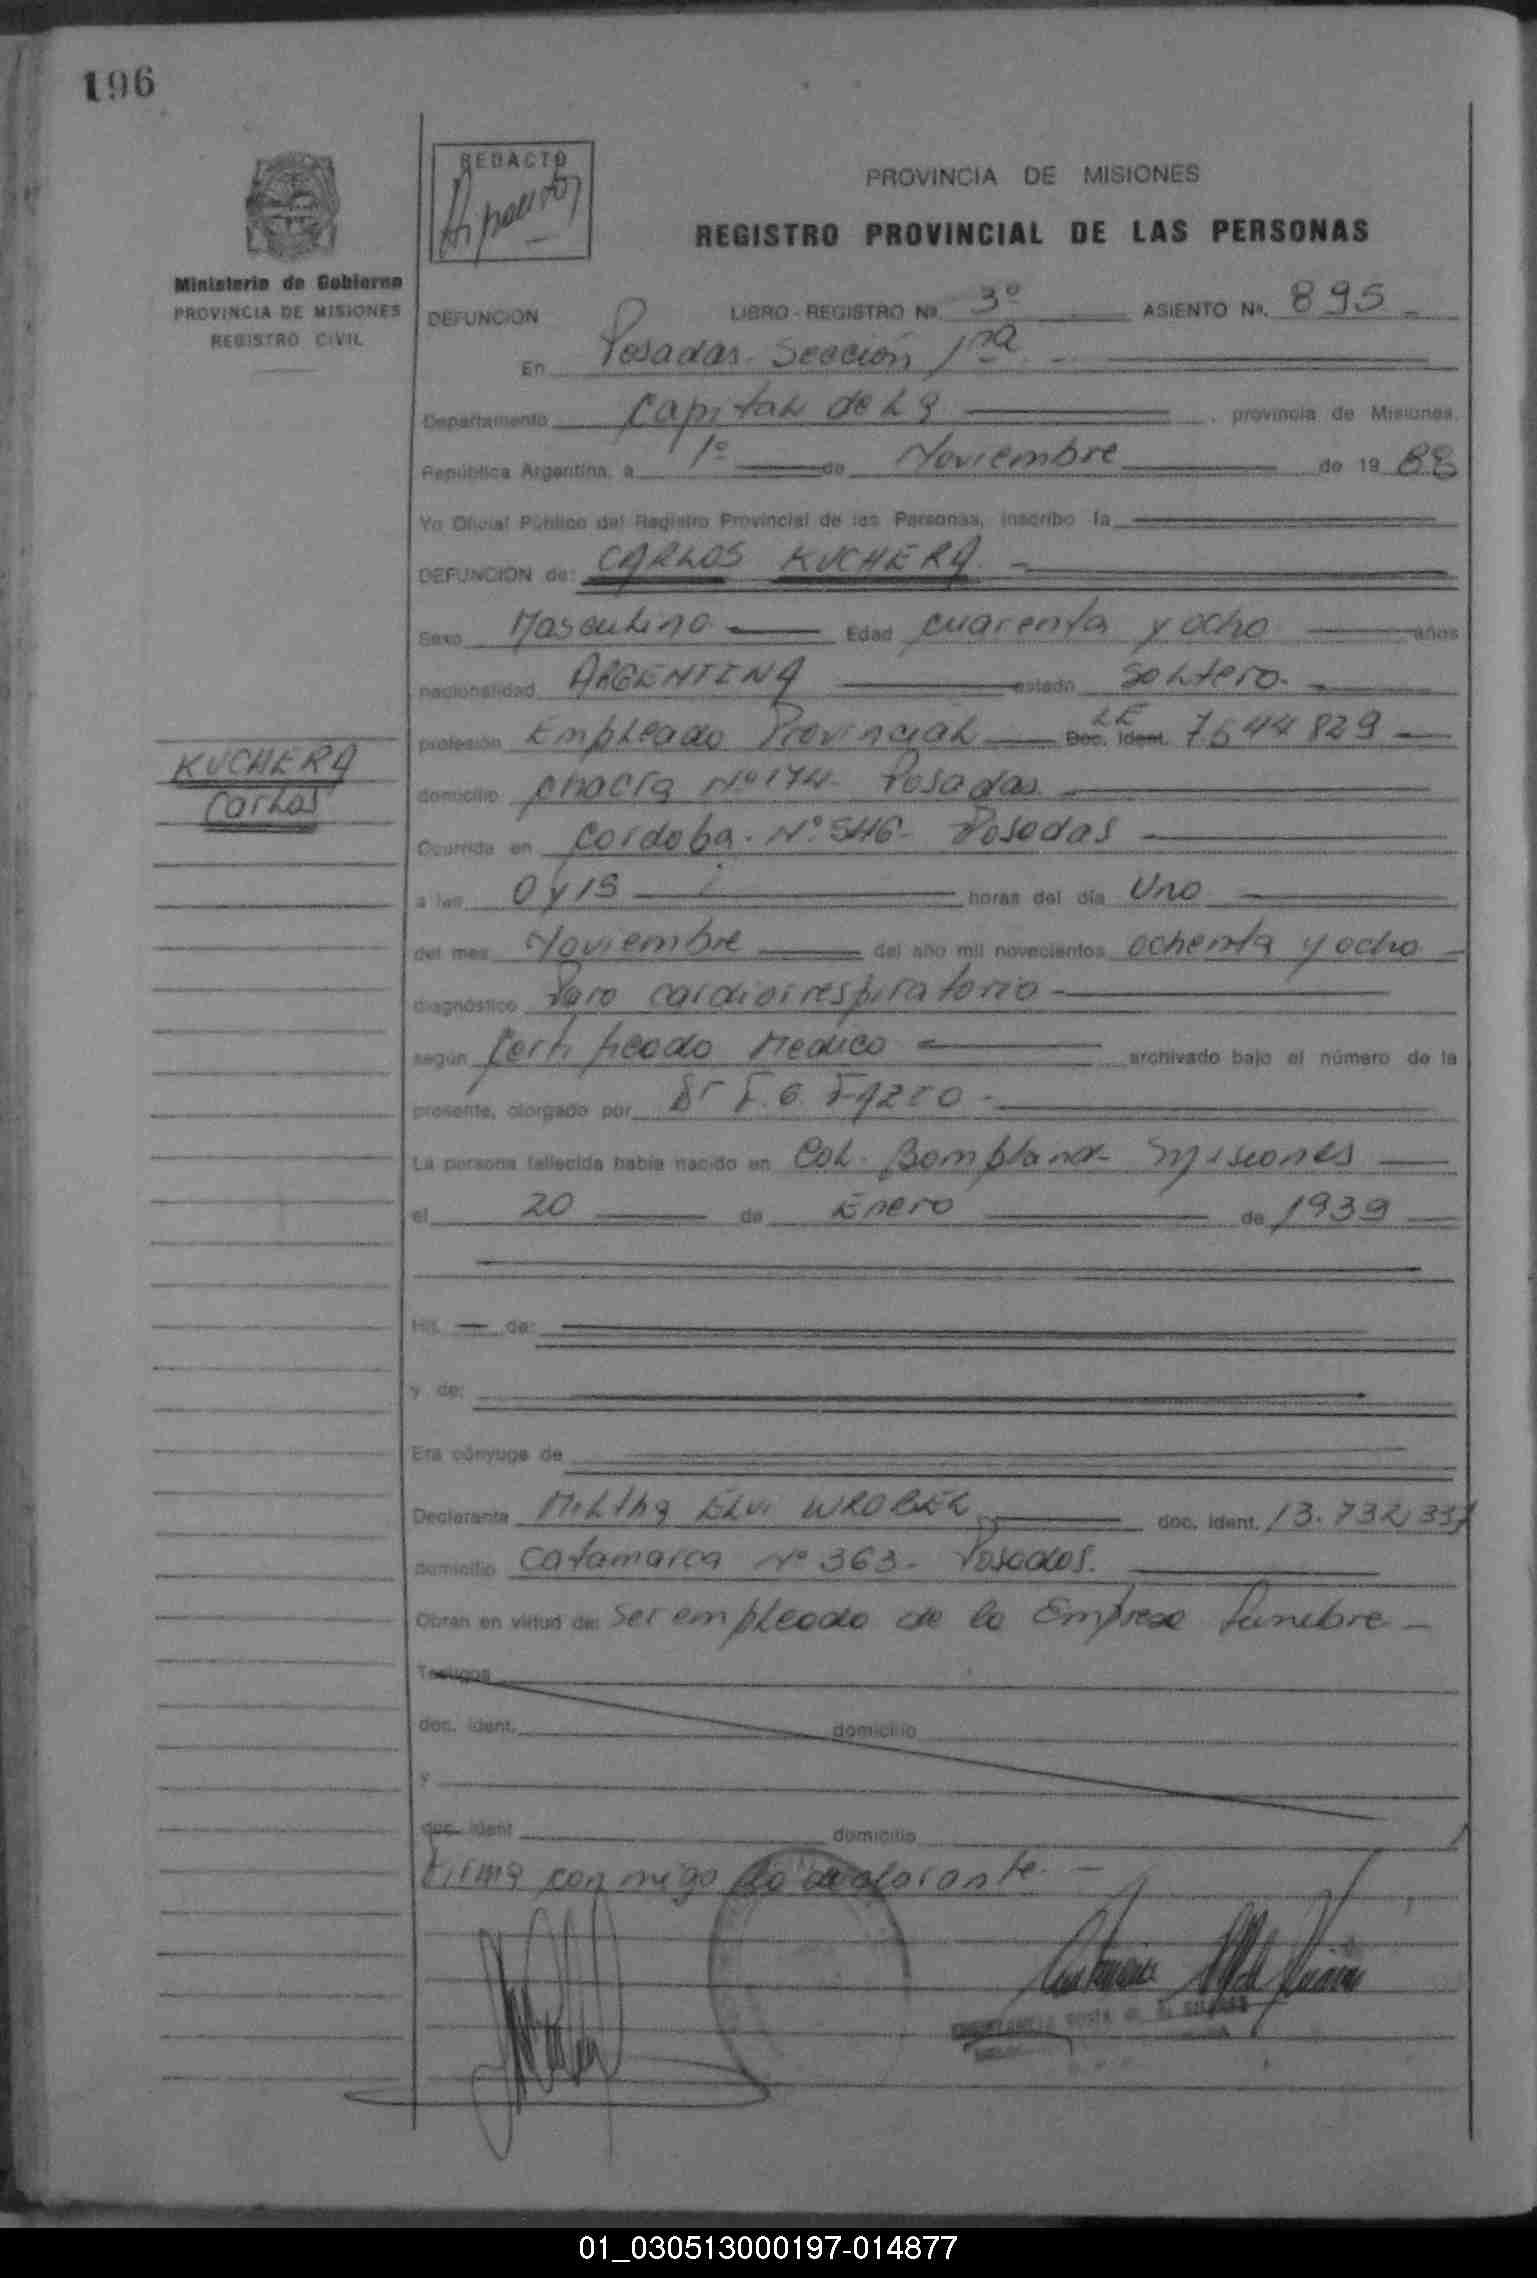 196
REDACTO
PROVINCIA DE MISIONES
REGISTRO PROVINCIAL DE LAS PERSONAS
Ministerio de Gobierno
PROVINCIA DE MISIONES
REGISTRO CIVIL
DEFUNCION LIBRO - REGISTRO Nº. 3º ASIENTO Nº. 895
En Posadas. Sección 1ra
Departamento Capital de La provincia de Misiones.
República Argentina, a 1º de Noviembre de 1988
Yo Oficial Público del Registro Provincial de las Personas, inscribo la
DEFUNCION de: CARLOS KUCHERA.
Sexo Masculino Edad cuarenta y ocho años
nacionalidad ARGENTINA estado Soltero.
profesión Empleado Provincial LE Doc. Ident. 7544829
KUCHERA
Carlos
domicilio chacra Nº 174- Posadas.
Ocurrida en Cordoba. Nº 546- Posadas
a las 0 y 15 horas del día Uno
del mes Noviembre del año mil novecientos ochenta y ocho
diagnóstico Paro cardiorrespiratorio
según Certificado Medico archivado bajo el número de la
presente, otorgado por Dr F. G.
La persona fallecida había nacido en Col. Bompland- Misiones
el 20 de Enero de 1939
Hij. de:
y de:
Era cónyuge de
Declarante Miltha Elvi WROBEL doc. ident. 13.732.337
domicilio Catamarca Nº 363- Posadas.
Obran en virtud de: Ser empleado de la Empresa funebre-
Testigos
doc. ident. domicilio
y
doc. ident domicilio
Firma conmigo la declarante.-
01_030513000197-014877